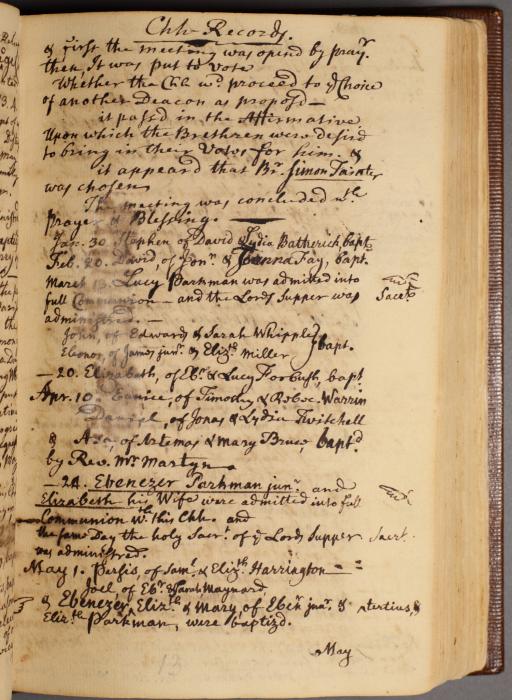 Chh Records.
& first the meeting was opend by prayr.
then, It was put to vote
Whether the Chh wd. proceed to ye Choice
of another Deacon as proposd —
it passd in the Affirmative
Upon which the Brethren were desird
to bring in their Votes for him. &
it appeard that Br. Simon Tainter
was chosen
The meeting was concluded wth.
Prayer & Blessing. —
Jan. 30 Stephen of David & Lydia Batherick bapt
Feb. 20. David of Jonn. & Joanna Fay, bapt.
March 13. Lucy Parkman was admitted into
full Communion — and the Lords Supper was Sacrt
administred. —
John, of Edward & Sarah Whipple
Eleonor, of James junr. & Elizth Miller } bapt.
— 20. Elizabeth, of Ebr. & Lucy Forbush, bapt
Apr. 10. Eunice, of Timothy & Rebec. Warrin
Daniel, of Jonas & Lydia Twitchell
& Asa, of Artemas & Mary Bruce, baptd
by Revd. Mr. Martyn
— 24. Ebenezer Parkman junr. and
Elizabeth his Wife were admitted into full
Communion wth. this Chh. and
the same Day the holy Sacrt. of ye Lords Supper Sacrt.
was administred.
May 1. Persis, of Saml. & Elizth. Harrington —
Joel of Ebr. & Sarah Maynard
& Ebenezer, Elizth. & Mary, of Ebenr. junr. & tertius, &
Elizth. Parkman, were baptizd.
May